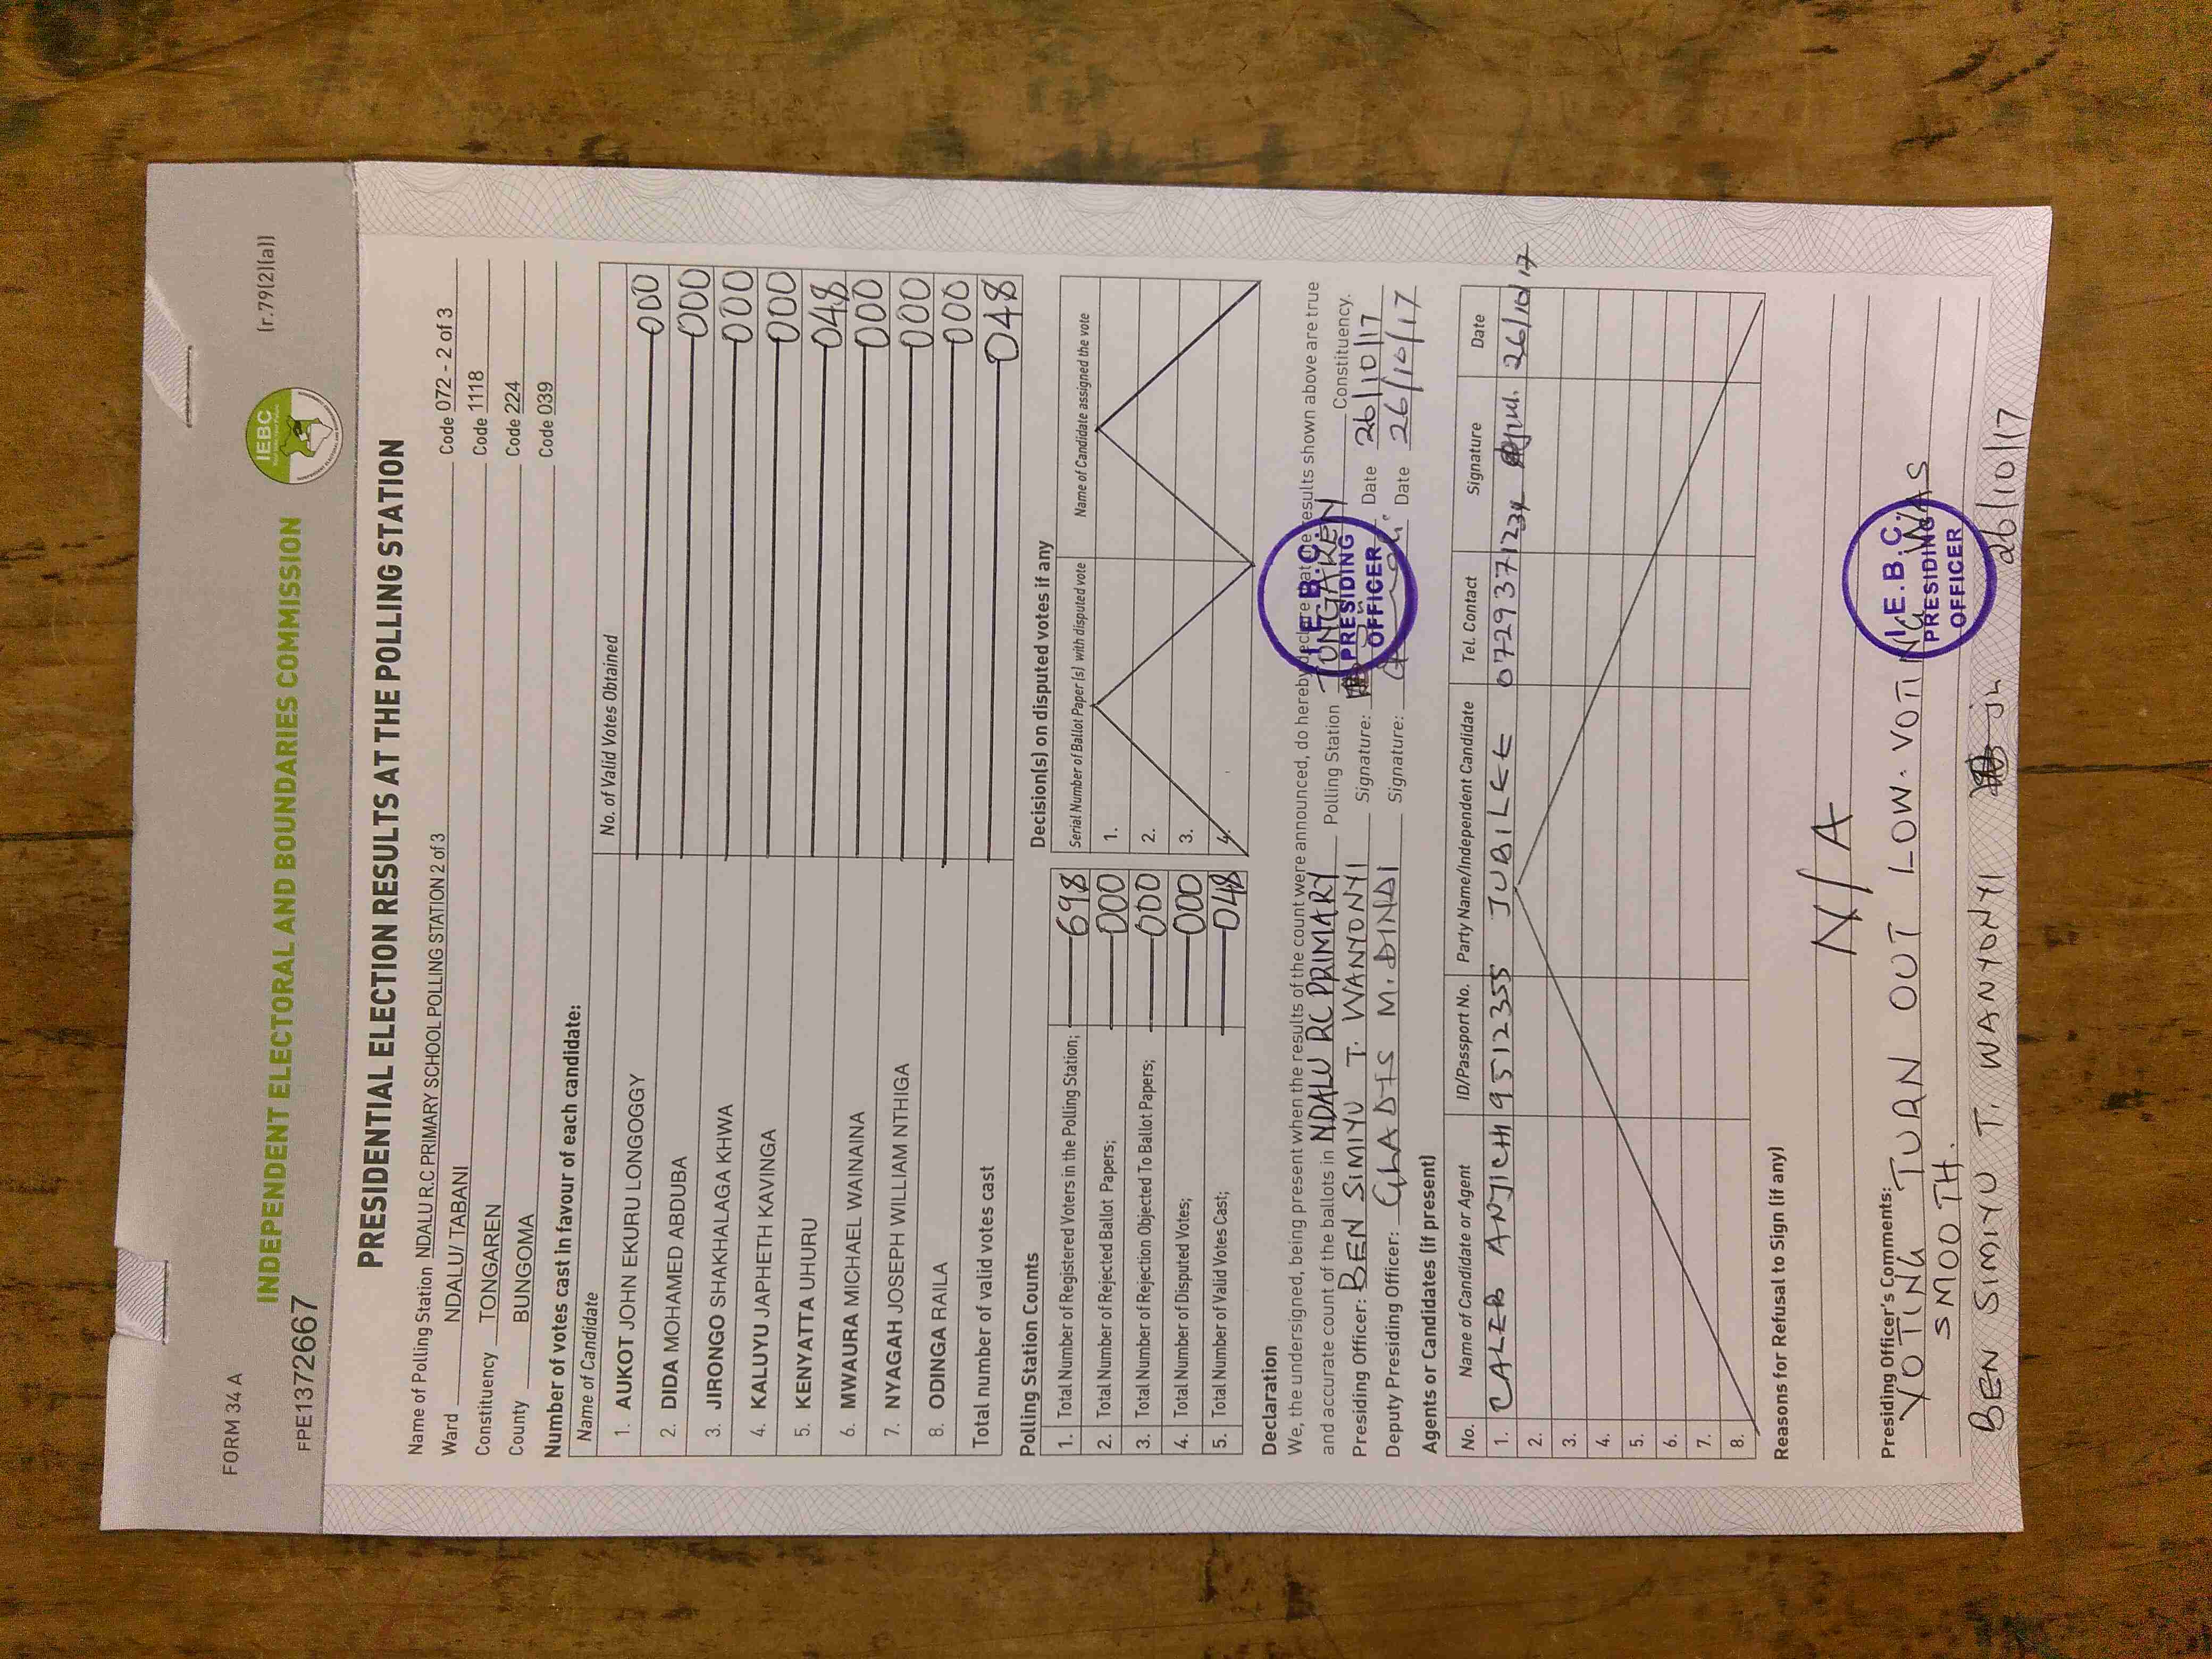 FORM 34 A
(r.79(2)(a))
INDEPENDENT ELECTORAL AND BOUNDARIES COMMISSION
IEBC
FPE1372667
PRESIDENTIAL ELECTION RESULTS AT THE POLLING STATION
Name of Polling Station NDALU R.C PRIMARY SCHOOL POLLING STATION 2 of 3 Code 072 - 2 of 3
Ward NDALU/ TABANI Code 1118
Constituency TONGAREN Code 224
County BUNGOMA Code 039
Number of votes cast in favour of each candidate:
Name of Candidate No. of Valid Votes Obtained
1. AUKOT JOHN EKURU LONGOGGY 000
2. DIDA MOHAMED ABDUBA 000
3. JIRONGO SHAKHALAGA KHWA 000
4. KALUYU JAPHETH KAVINGA 000
5. KENYATTA UHURU 048
6. MWAURA MICHAEL WAINAINA 000
7. NYAGAH JOSEPH WILLIAM NTHIGA 000
8. ODINGA RAILA 000
Total number of valid votes cast 048
Polling Station Counts
1. Total Number of Registered Voters in the Polling Station; 698
2. Total Number of Rejected Ballot Papers; 000
3. Total Number of Rejection Objected To Ballot Papers; 000
4. Total Number of Disputed Votes; 000
5. Total Number of Valid Votes Cast; 048
Decision(s) on disputed votes if any
Serial Number of Ballot Paper (s) with disputed vote Name of Candidate assigned the vote
1.
2.
3.
4.
Declaration
We, the undersigned, being present when the results of the count were announced, do hereby declare that the results shown above are true
and accurate count of the ballots in NDALU RC PRIMARY Polling Station TONGAREN Constituency.
Presiding Officer: BEN SIMIYU T. WANYONYI Signature: Date 26/10/17
Deputy Presiding Officer: GLADYS M. DINDI Signature: Date 26/10/17
I.E.B.C.
PRESIDING
OFFICER
Agents or Candidates (if present)
No. Name of Candidate or Agent ID/Passport No. Party Name/Independent Candidate Tel. Contact Signature Date
1. CALEB ANJICHI 9512355 JUBILEE 0729371234 26/10/17
2.
3.
4.
5.
6.
7.
8.
Reasons for Refusal to Sign (if any)
N/A
Presiding Officer's Comments:
VOTING TURN OUT LOW. VOTING WAS
SMOOTH.
I.E.B.C.
PRESIDING
OFFICER
BEN SIMIYU T. WANYONYI 26/10/17